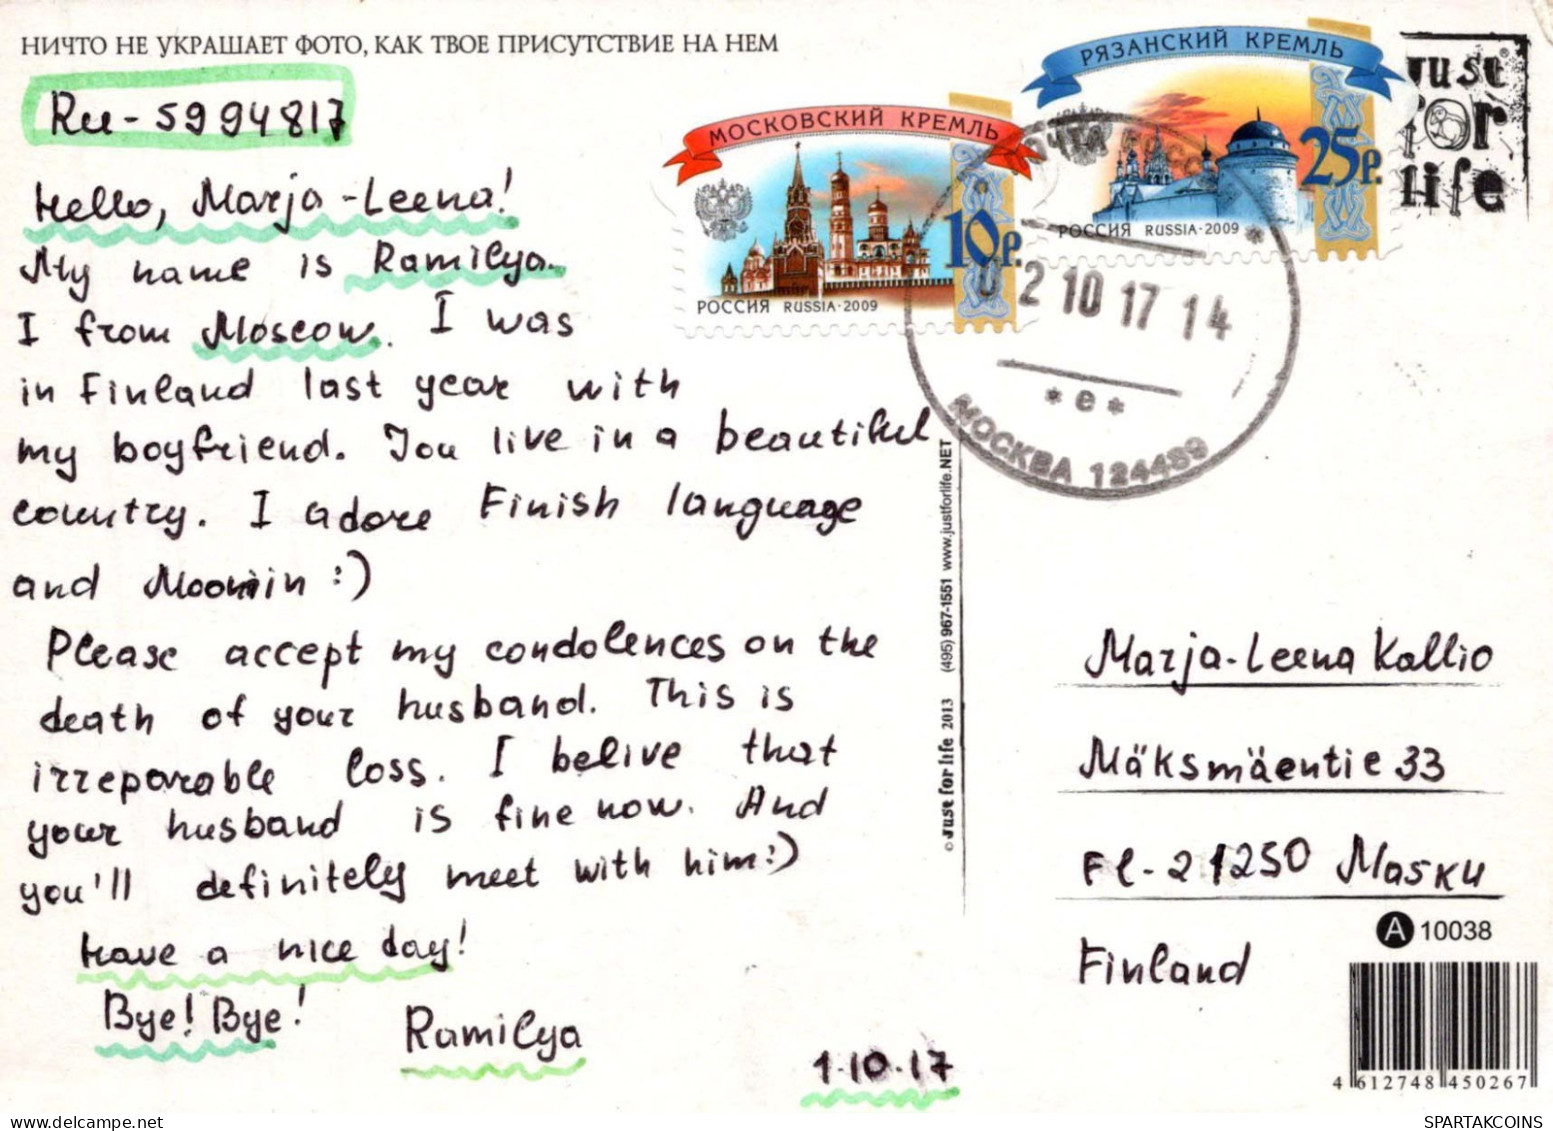 НИЧТО НЕ УКРАШАЕТ ФОТО, КАК ТВОЕ ПРИСУТСТВИЕ НА НЕМ
Ru-5994817
Hello, Marja-Leena!
My name is Ramilya.
I from Moscow. I was
in Finland last year with
my boyfriend. You live in a beautiful
country. I adore Finish language
and Moomin :)
Please accept my condolences on the
death of your husband. This is
irreparable loss. I belive that
your husband is fine now. And
you'll definitely meet with him:)
Have a nice day!
Bye! Bye!
Ramilya
1.10.17
МОСКОВСКИЙ КРЕМЛЬ
10р.
РОССИЯ RUSSIA·2009
РЯЗАНСКИЙ КРЕМЛЬ
25р.
РОССИЯ RUSSIA·2009
ПОЧТА РОССИИ
02 10 17 14
*е*
МОСКВА 124489
Just
for
life
© Just for life 2013 (495) 967-1551 www.justforlife.NET
Marja-Leena Kallio
Mäksmäentie 33
FI-21250 Masku
Finland
A 10038
4 612748 450267
SPARTAKCOINS